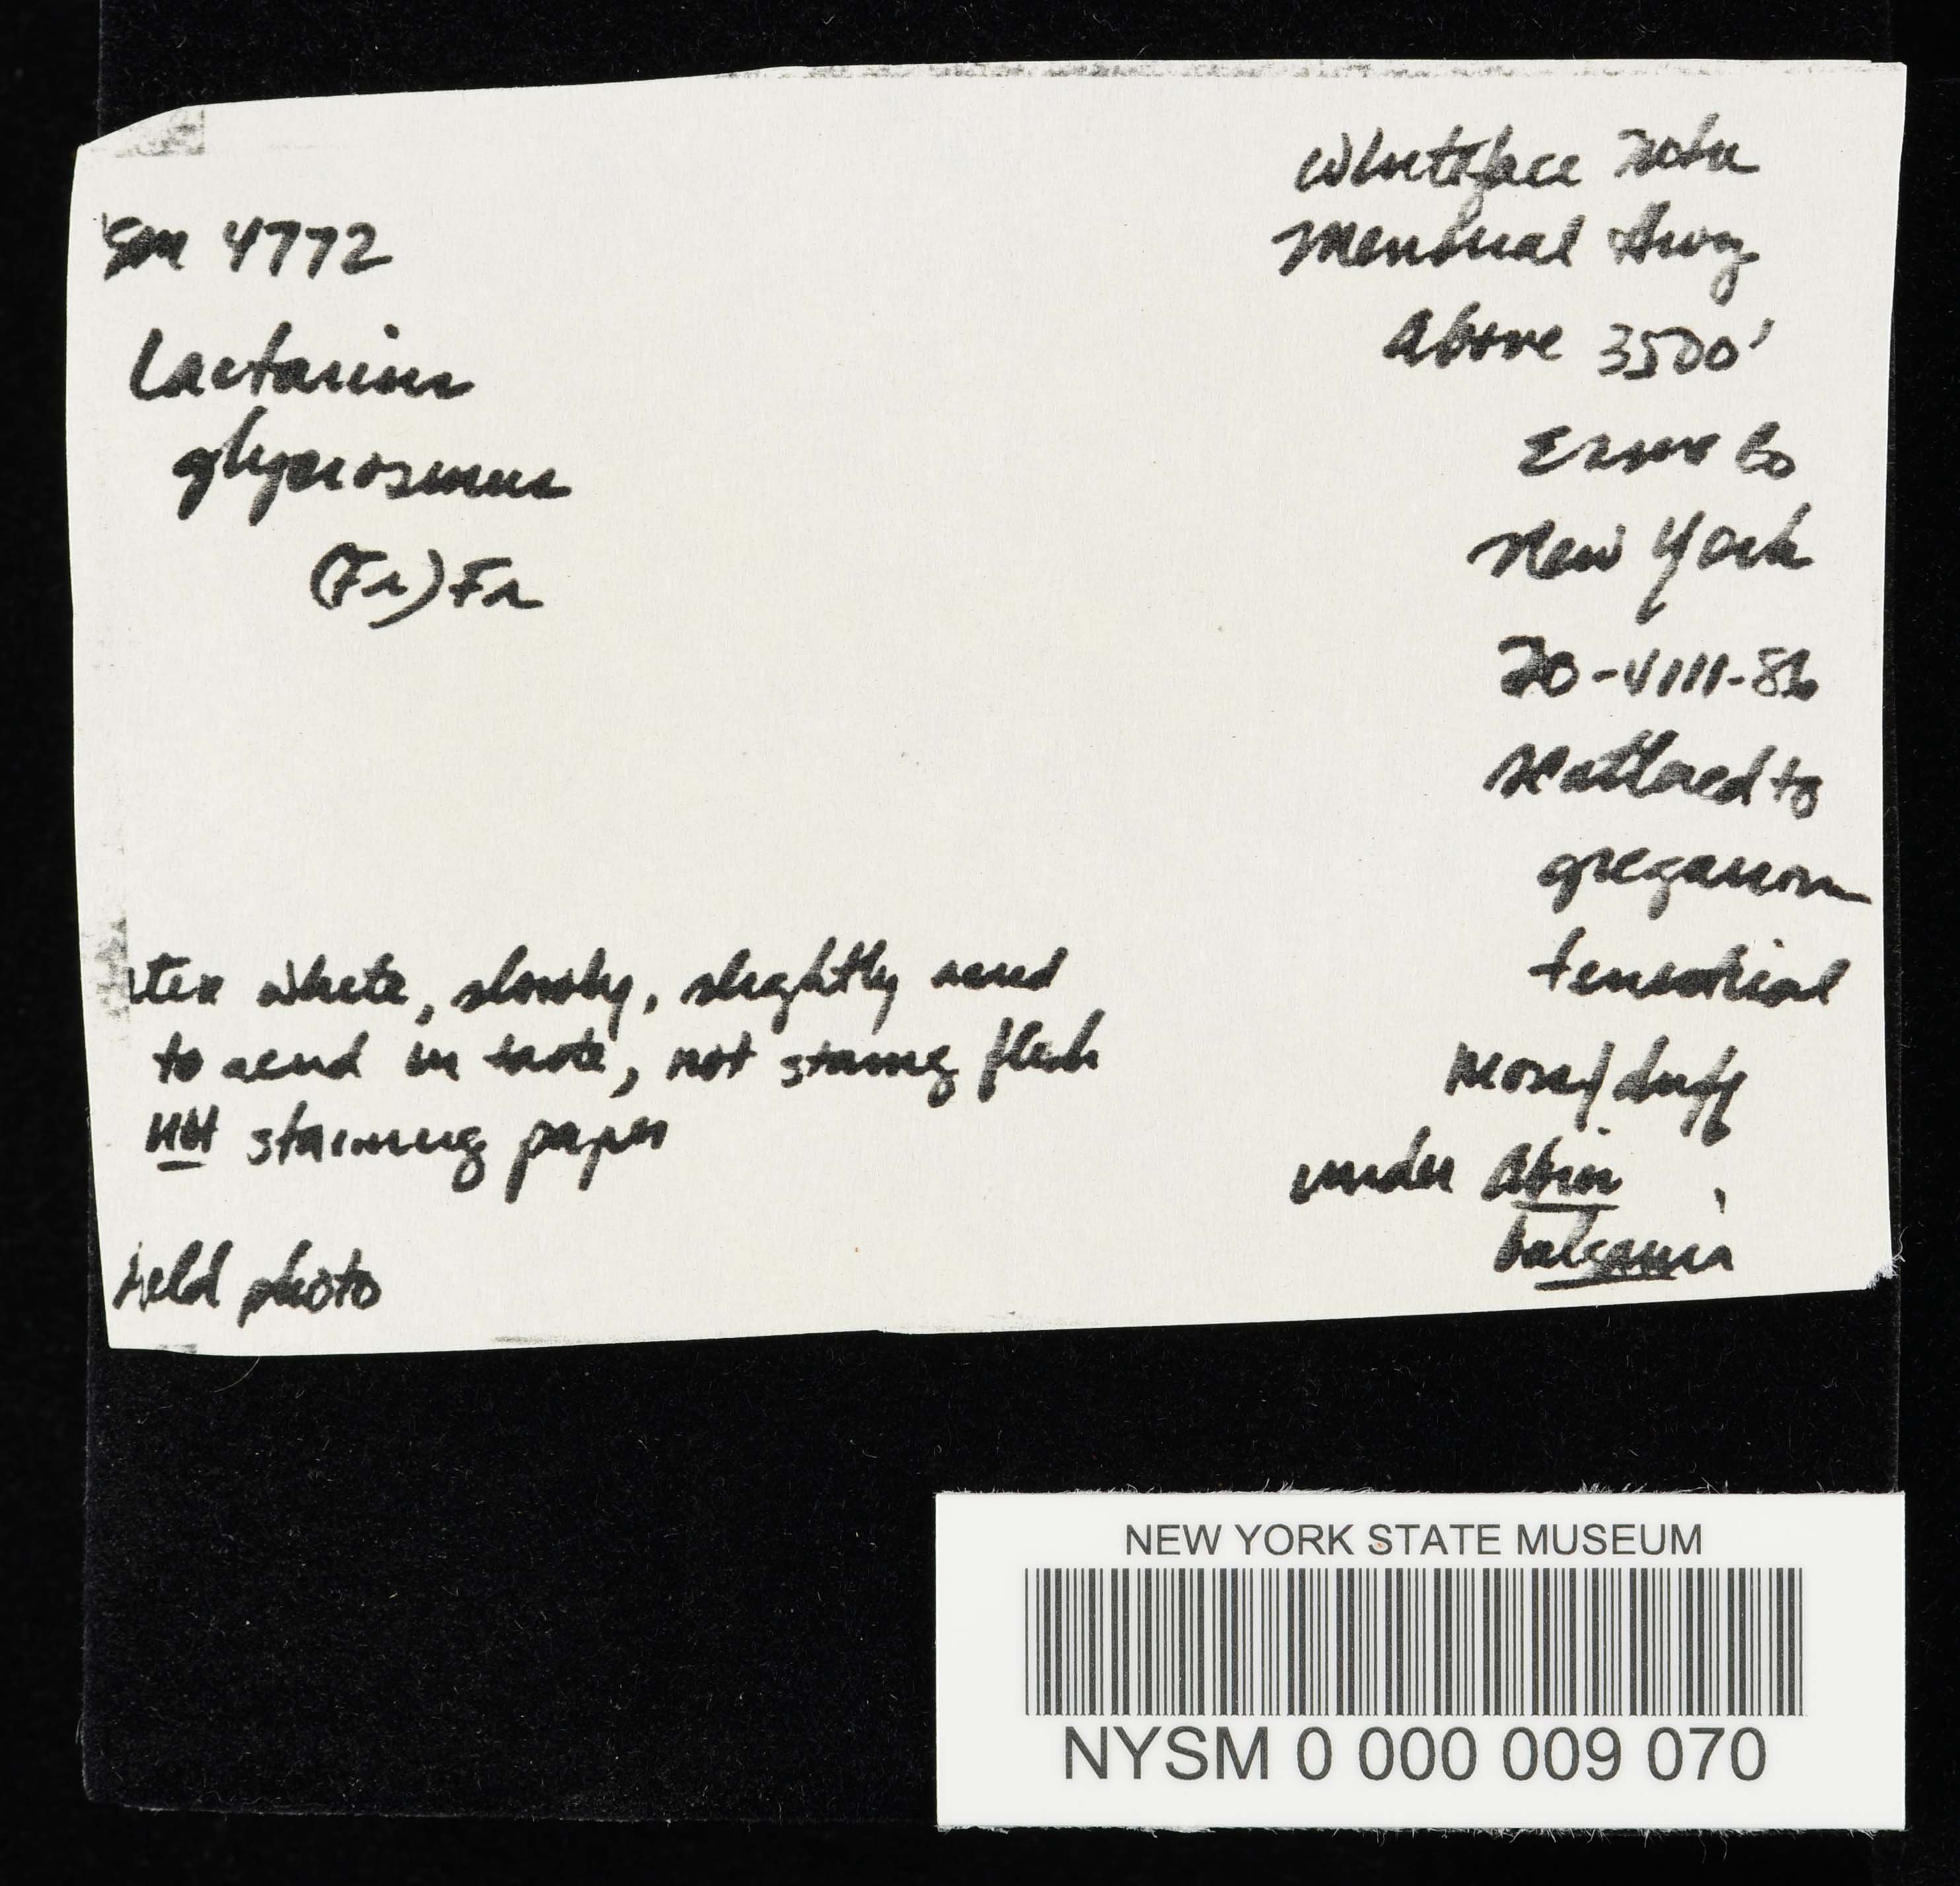 4772
Lactarius
glyciosmus
(Fr) Fr
Whiteface Mtn
Memorial Hwy
Above 3500'
Essex Co
New York
20-VIII-86
scattered to
gregarious
terrestrial
moss/duff
under Abies
balsamia
tex white, slowly, slightly acrid
to acrid in taste, not staing flesh
not staining paper
ield photo
NEW YORK STATE MUSEUM
NYSM 0 000 009 070